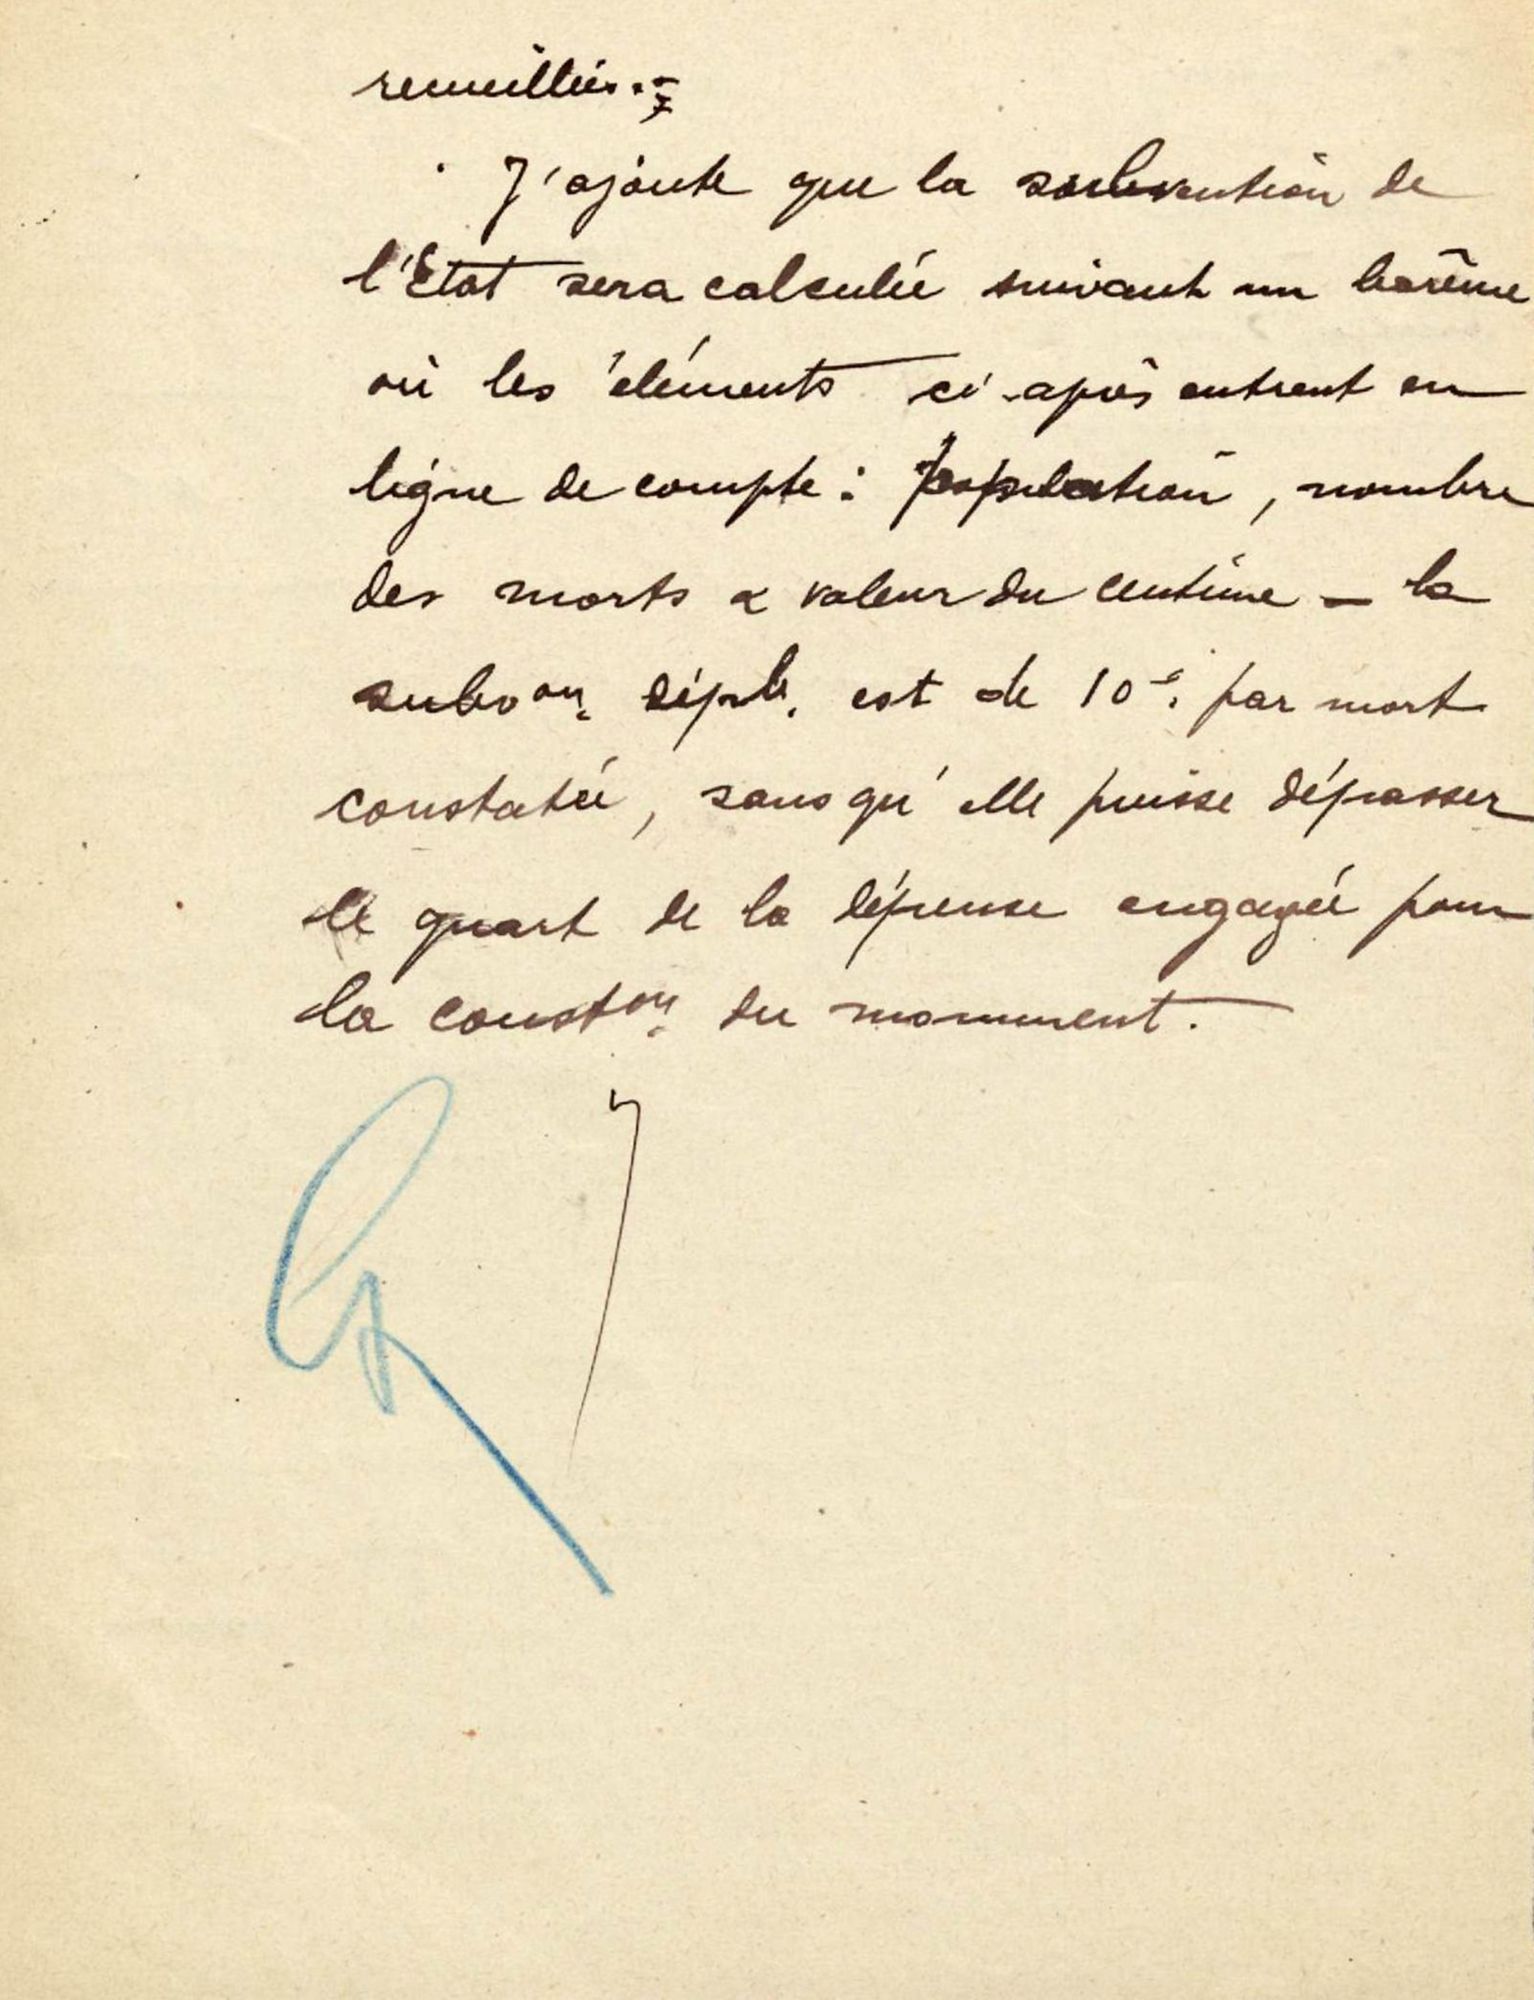 recueillies.-
J'ajoute que la subvention de
l'Etat sera calculée suivant un barême
où les éléments ci-après entrent en
ligne de compte : population, nombre
des morts & valeur du centime – la
subv^on. dép^le. est de 10^f. par mort
constatée, sans qu'elle puisse dépasser
le quart de la dépense engagée pour
la const^on. du monument.